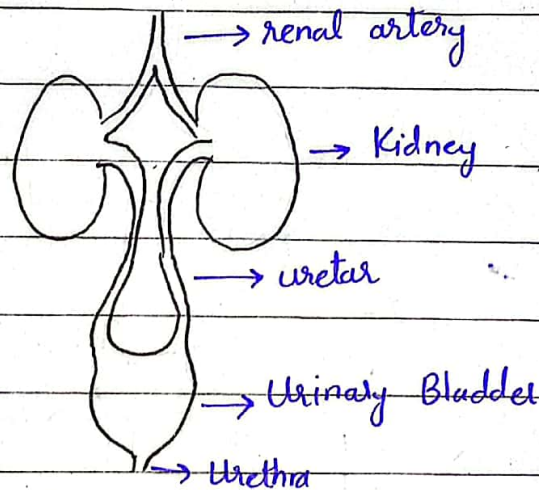 renal artery
Kidney
uretar
Urinary Bladder
Urethra